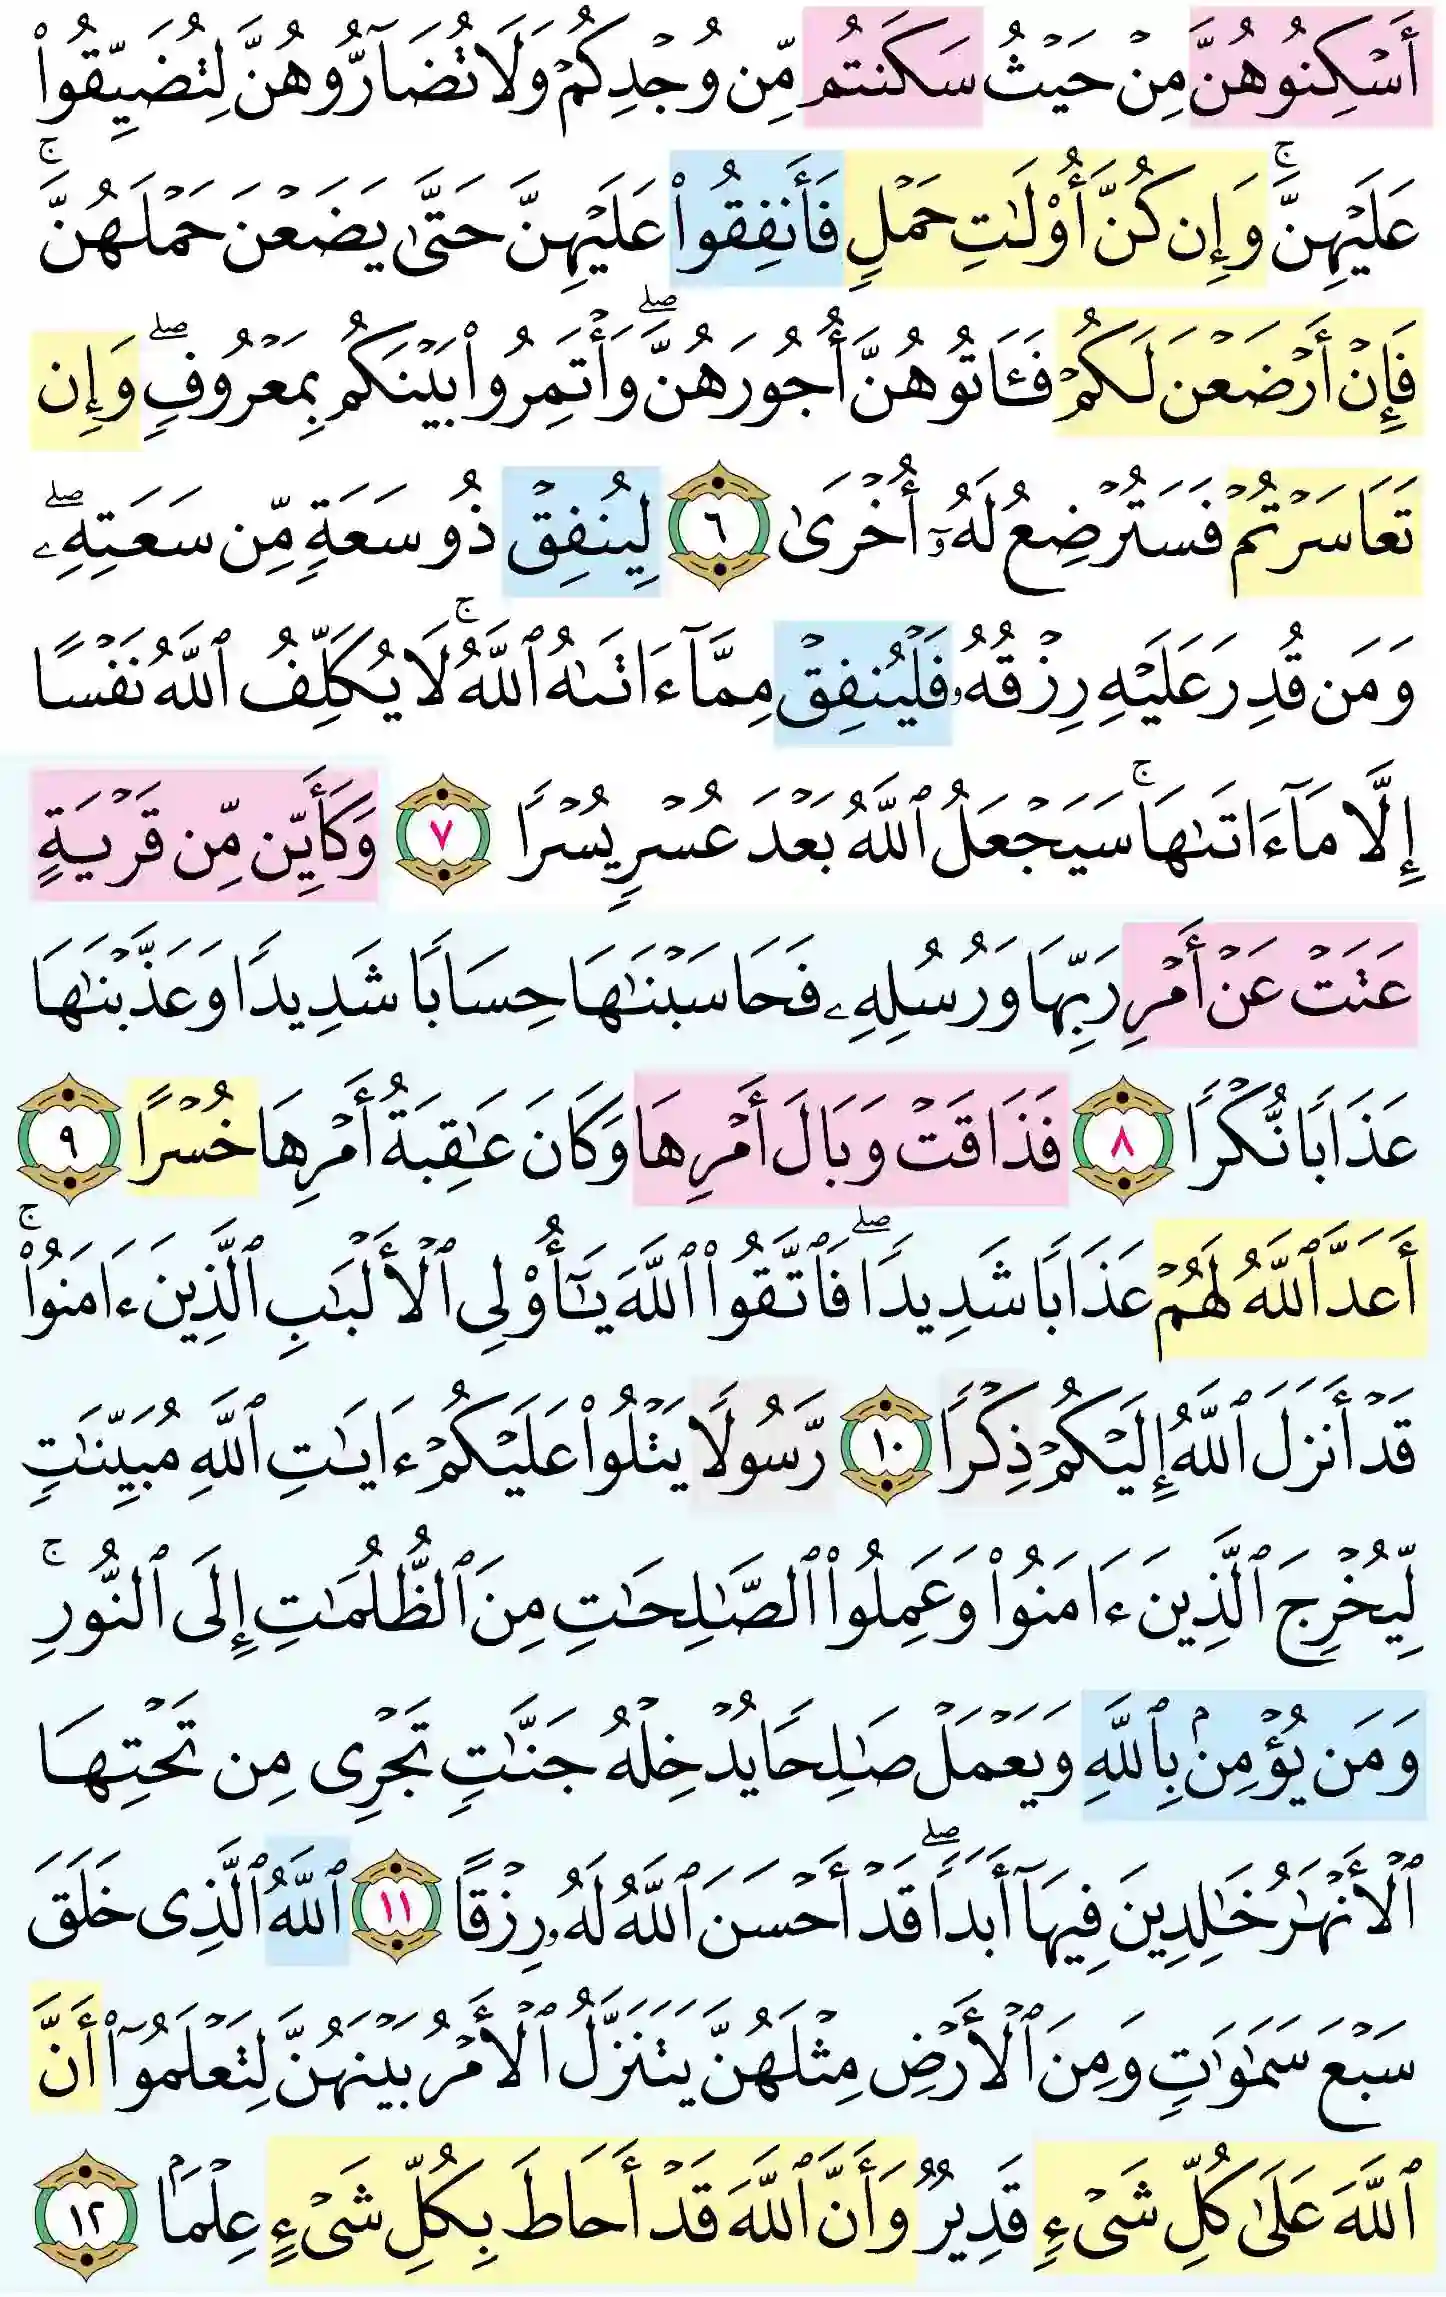 أَسْكِنُوهُنَّ مِنْ حَيْثُ سَكَنتُم مِّن وُجْدِكُمْ وَلَا تُضَآرُّوهُنَّ لِتُضَيِّقُوا۟
عَلَيْهِنَّ ۚ وَإِن كُنَّ أُو۟لَـٰتِ حَمْلٍ فَأَنفِقُوا۟ عَلَيْهِنَّ حَتَّىٰ يَضَعْنَ حَمْلَهُنَّ ۚ
فَإِنْ أَرْضَعْنَ لَكُمْ فَـَٔاتُوهُنَّ أُجُورَهُنَّ ۖ وَأْتَمِرُوا۟ بَيْنَكُم بِمَعْرُوفٍ ۖ وَإِن
تَعَاسَرْتُمْ فَسَتُرْضِعُ لَهُۥٓ أُخْرَىٰ ٦ لِيُنفِقْ ذُو سَعَةٍ مِّن سَعَتِهِۦ ۖ
وَمَن قُدِرَ عَلَيْهِ رِزْقُهُۥ فَلْيُنفِقْ مِمَّآ ءَاتَىٰهُ ٱللَّهُ ۚ لَا يُكَلِّفُ ٱللَّهُ نَفْسًا
إِلَّا مَآ ءَاتَىٰهَا ۚ سَيَجْعَلُ ٱللَّهُ بَعْدَ عُسْرٍ يُسْرًا ٧ وَكَأَيِّن مِّن قَرْيَةٍ
عَتَتْ عَنْ أَمْرِ رَبِّهَا وَرُسُلِهِۦ فَحَاسَبْنَـٰهَا حِسَابًا شَدِيدًا وَعَذَّبْنَـٰهَا
عَذَابًا نُّكْرًا ٨ فَذَاقَتْ وَبَالَ أَمْرِهَا وَكَانَ عَـٰقِبَةُ أَمْرِهَا خُسْرًا ٩
أَعَدَّ ٱللَّهُ لَهُمْ عَذَابًا شَدِيدًا ۖ فَٱتَّقُوا۟ ٱللَّهَ يَـٰٓأُو۟لِى ٱلْأَلْبَـٰبِ ٱلَّذِينَ ءَامَنُوا۟ ۚ
قَدْ أَنزَلَ ٱللَّهُ إِلَيْكُمْ ذِكْرًا ١٠ رَّسُولًا يَتْلُوا۟ عَلَيْكُمْ ءَايَـٰتِ ٱللَّهِ مُبَيِّنَـٰتٍ
لِّيُخْرِجَ ٱلَّذِينَ ءَامَنُوا۟ وَعَمِلُوا۟ ٱلصَّـٰلِحَـٰتِ مِنَ ٱلظُّلُمَـٰتِ إِلَى ٱلنُّورِ ۚ
وَمَن يُؤْمِنۢ بِٱللَّهِ وَيَعْمَلْ صَـٰلِحًا يُدْخِلْهُ جَنَّـٰتٍ تَجْرِى مِن تَحْتِهَا
ٱلْأَنْهَـٰرُ خَـٰلِدِينَ فِيهَآ أَبَدًا ۖ قَدْ أَحْسَنَ ٱللَّهُ لَهُۥ رِزْقًا ١١ ٱللَّهُ ٱلَّذِى خَلَقَ
سَبْعَ سَمَـٰوَٰتٍ وَمِنَ ٱلْأَرْضِ مِثْلَهُنَّ يَتَنَزَّلُ ٱلْأَمْرُ بَيْنَهُنَّ لِتَعْلَمُوٓا۟ أَنَّ
ٱللَّهَ عَلَىٰ كُلِّ شَىْءٍ قَدِيرٌ وَأَنَّ ٱللَّهَ قَدْ أَحَاطَ بِكُلِّ شَىْءٍ عِلْمًۢا ١٢